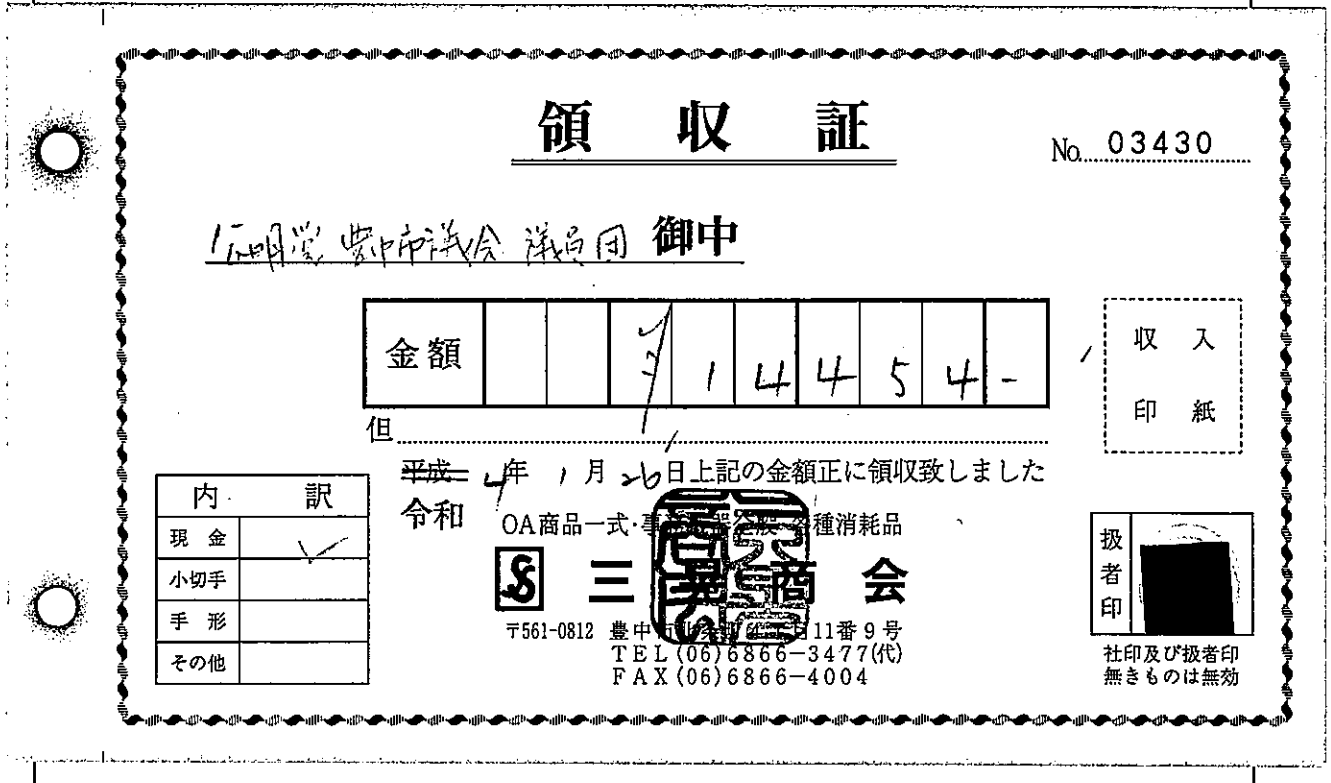 領収証
No. 03430
公明党 豊中市議会 議員団 御中
金額 ¥14454-
収入
印紙
但
平成 4年 1月 26日上記の金額正に領収致しました
令和
内訳
現金
小切手
手形
その他
OA商品一式・事 各種消耗品
三晃商会
〒561-0812 豊中市 11番9号
TEL(06)6866-3477(代)
FAX(06)6866-4004
扱者印
社印及び扱者印
無きものは無効